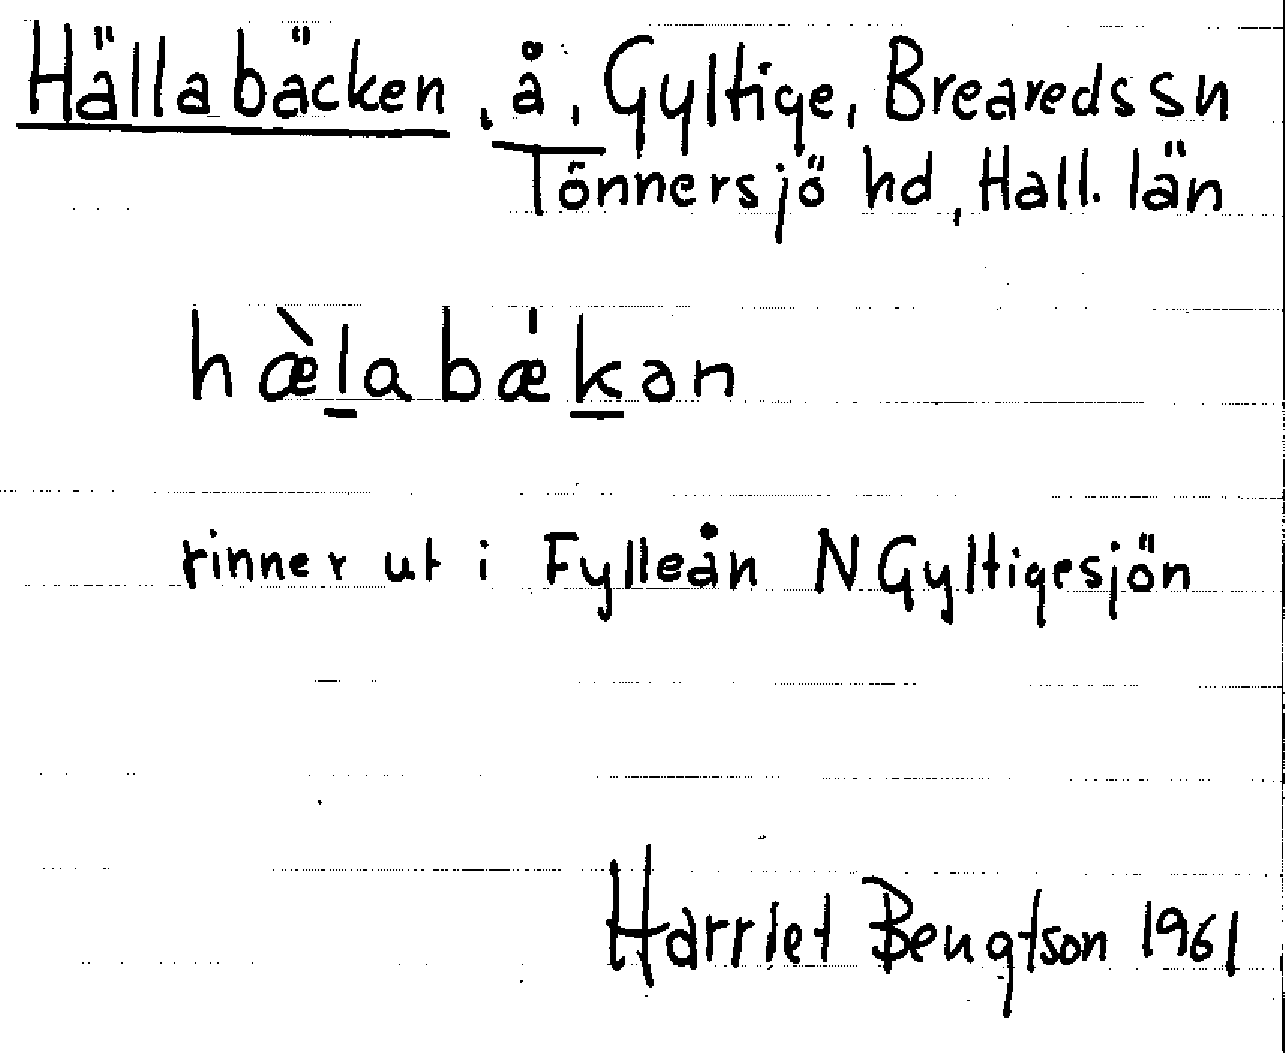 Hällabäcken, å, Gyltige, Breareds sn
Tönnersjö hd, Hall. län
hæ̀l̲abæ̍k̲ən
rinner ut i Fylleån N Gyltigesjön
Harriet Bengtson 1961